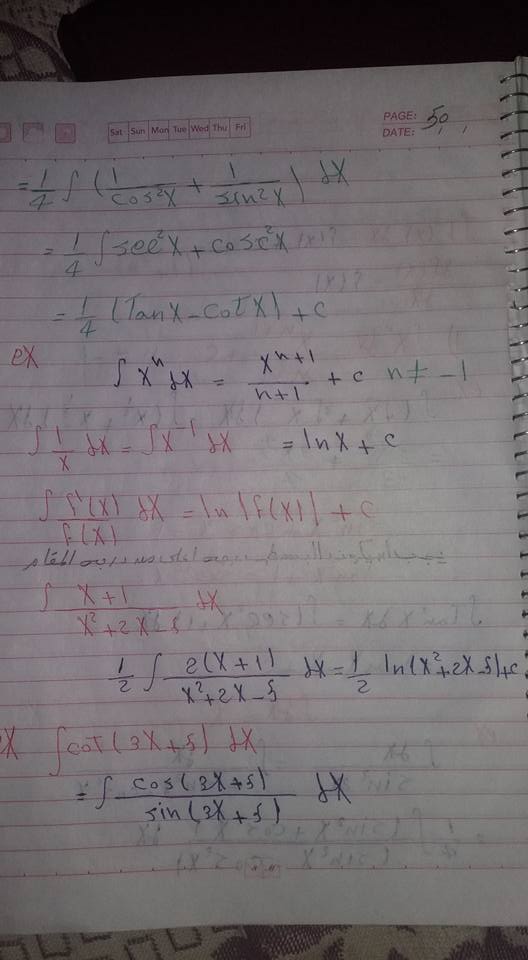 Sat Sun Mon Tue Wed Thu Fri
PAGE: 50
DATE:
= 1/4 ∫ (1/cos²x + 1/sin²x) dx
= 1/4 ∫ sec²x + cosc²x
= 1/4 (Tanx - cotx) + c
ex
∫ xⁿ dx = xⁿ⁺¹/n+1 + c n ≠ -1
∫ 1/x dx = ∫ x⁻¹ dx = lnx + c
∫ f'(x)/f(x) dx = ln|f(x)| + c
∫ x+1/x²+2x-5 dx
1/2 ∫ 2(x+1)/x²+2x-5 dx = 1/2 ln(x²+2x-5)+c
ex ∫ cot(3x+5) dx
= ∫ cos(3x+5)/sin(3x+5) dx